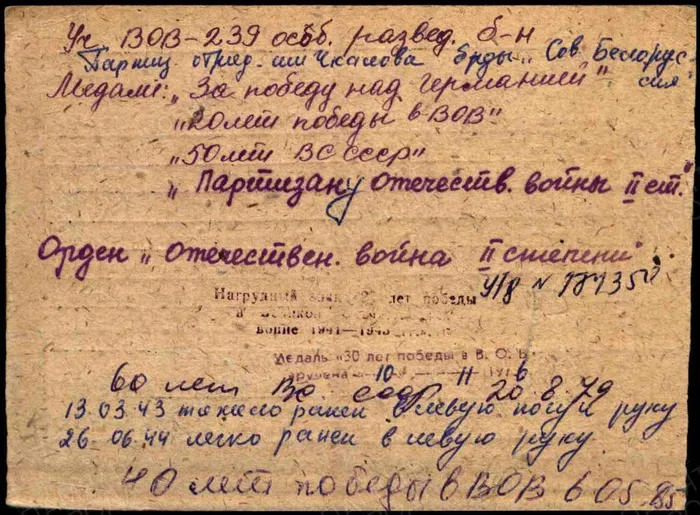 Уч. ВОВ-239 особ. развед. б-н
Партиз отряд. им Чкалова брды "Сов. Белорус-
сия
Медали: "За победу над Германией"
"20 лет победы в ВОВ"
"50 лет ВС СССР"
"Партизану отечеств. войны II ст."
Орден "отечествен. война II степени"
У/в №
Нагрудный знак "2 лет победы
в Великой
войне 1941—1945
Медаль «30 лет победы в В. О. В
вручена 10 11 197 6
60 лет Во. 20.8.79
13.03.43 тяжело ранен в левую ногу и руку
26.06.44 легко ранен в левую руку.
40 лет победы в ВОВ 6 05.85